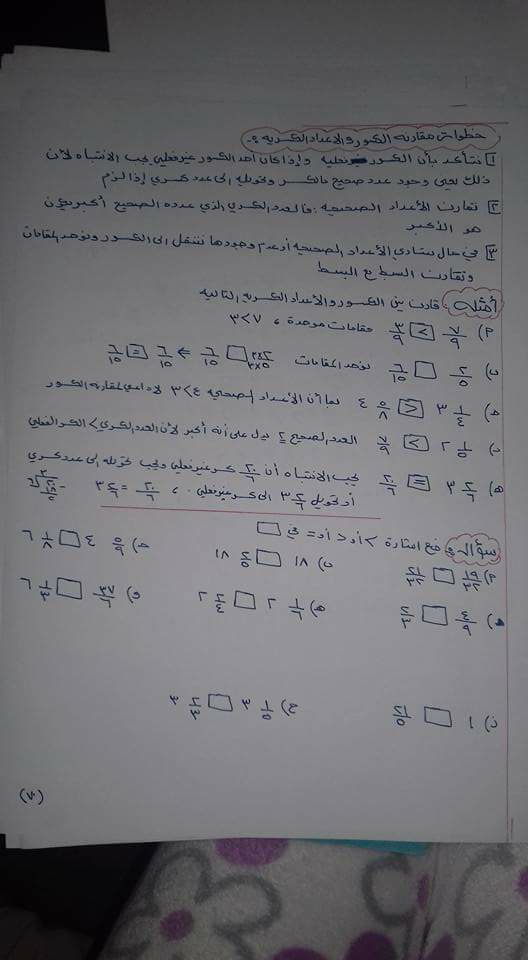 خطوات مقارنة الكسور والأعداد الكسرية :-
١ نتأكد بأن الكسور فعلية وإذا كان أحد الكسور غير فعلي يجب الانتباه لأن
ذلك يعني وجود عدد صحيح بالكسر وتحويله الى عدد كسري إذا لزم
٢ نقارن الأعداد الصحيحة : فالعدد الكسري الذي عدده الصحيح أكبر يكون
هو الأكبر
٣ في حال تساوي الأعداد الصحيحة أو عدم وجودها ننتقل الى الكسور ونوحد المقامات
ونقارن البسط مع البسط
أمثلة : قارن بين الكسور والأعداد الكسرية التالية
٧/٩ > ٣/٩ مقامات موحدة ، ٧ > ٣
ب) ٢/٥ □ ٦/١٥ نوحد المقامات ٢×٣/٥×٣ □ ٦/١٥ ⇐ ٦/١٥ = ٦/١٥
ج) ٣ ١/٤ < ٤ ٥/٨ بما أن الأعداد الصحيحة ٤ > ٣ لا داعي لمقارنة الكسور
د) ٢ ١/٥ > ٧/٩ العدد الصحيح ٢ يدل على أنه أكبر لأن العدد الكسري > الكسر الفعلي
ه) ٣ ٢/٦ = ٢٠/٦ يجب الانتباه أن ٢٠/٦ كسر غير فعلي ويجب تحويله الى عدد كسري
أو تحويل ٣ ٢/٦ الى كسر غير فعلي . ، ٢٠/٦ = ٣ ٢/٦
سؤال : ضع اشارة > أو < أو = في □
١٩/٣٢ □ ٢١/٣٢ ب) ١٨ □ ١٨ ٢/٥ ج) ٤ ٥/٩ □ ٦ ١/٨
٤/٩ □ ٢/٣ ه) ٢ ١/٦ □ ٢ ٢/٤ و) ٣٧/٦ □ ٦ ١/٣
ز) ١ □ ٢١/٥ ح) ٣ ١/٥ □ ٣ ٢/٣
(٧)